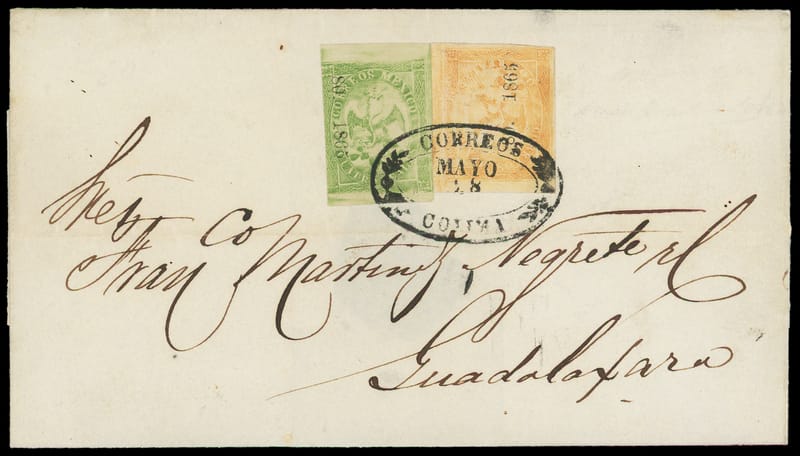 CORREOS MEXICO
80 1865
1865
CORREOS
MAYO
18
COLIMA
Co
Fran Martinz Negrete
Guadalaxara